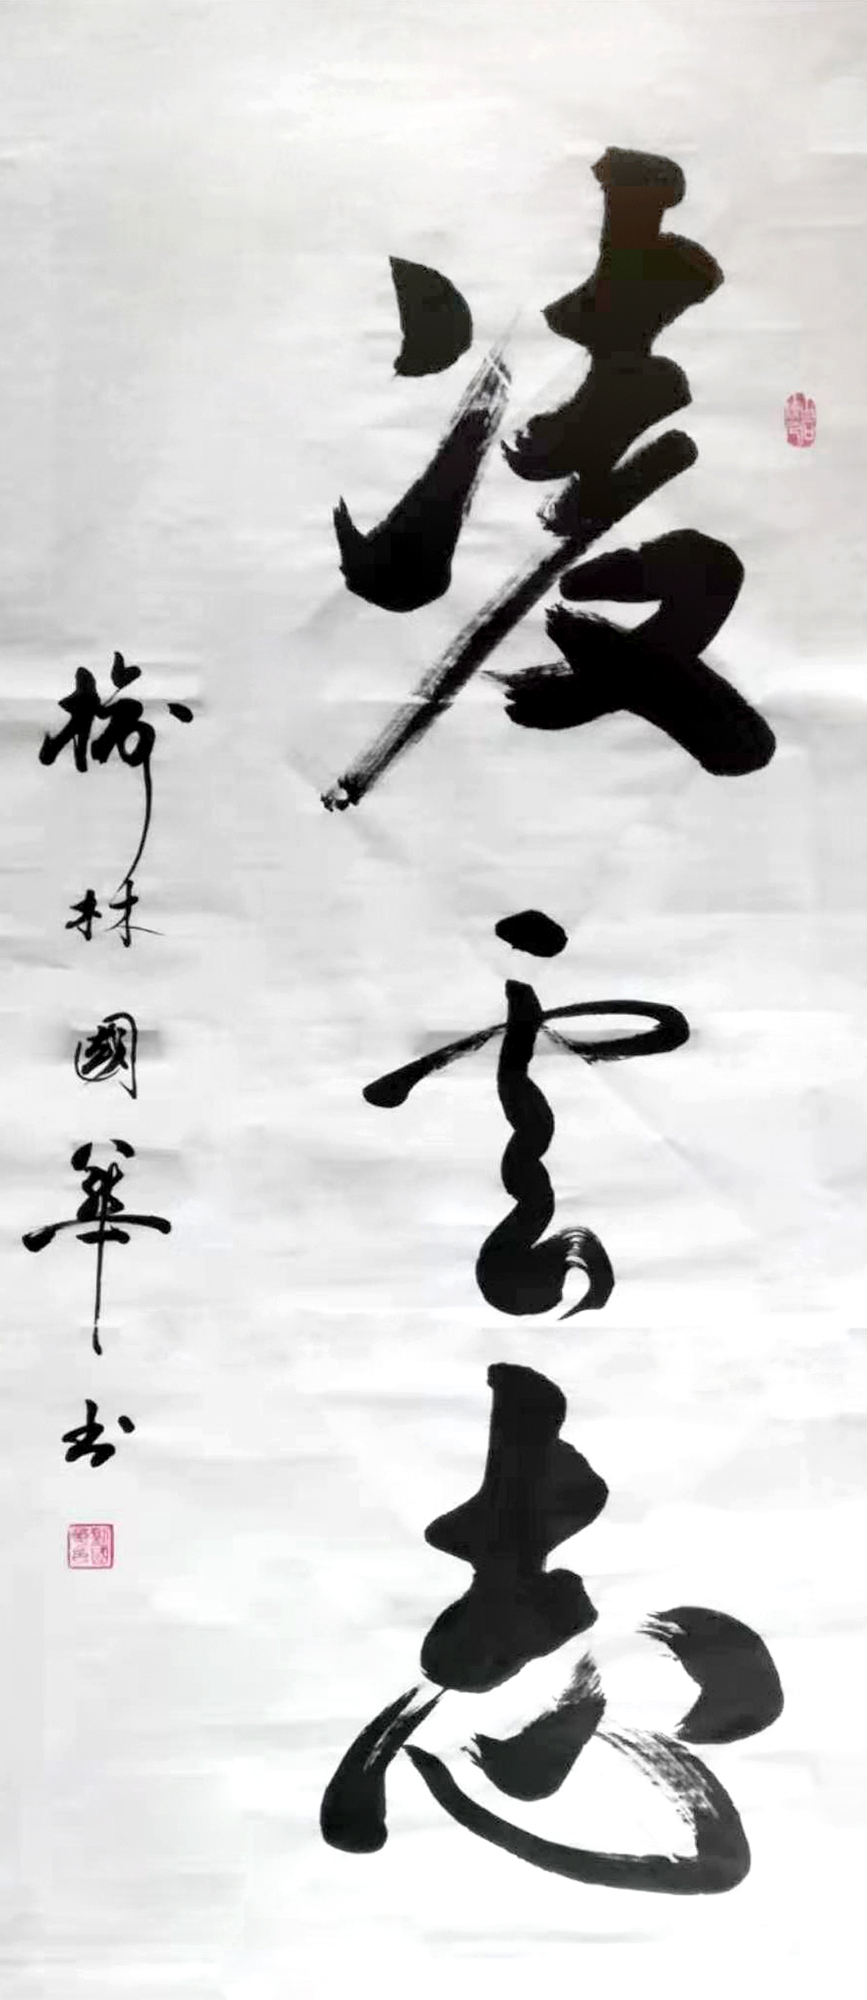 凌雲志
榆林國華书